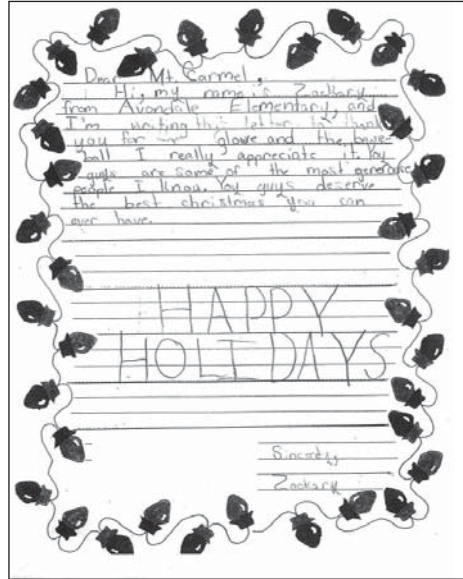 Dear Mt. Carmel,
Hi, my name is Zackary
from Avondale Elementary, and
I'm writing this letter to thank
you for glove and the base-
ball I really appreciate it. You
guys are some of the most generouse
people I know. You guys deserve
the best christmas you can
ever have.
HAPPY
HOLIDAYS
Sincerely,
Zackary